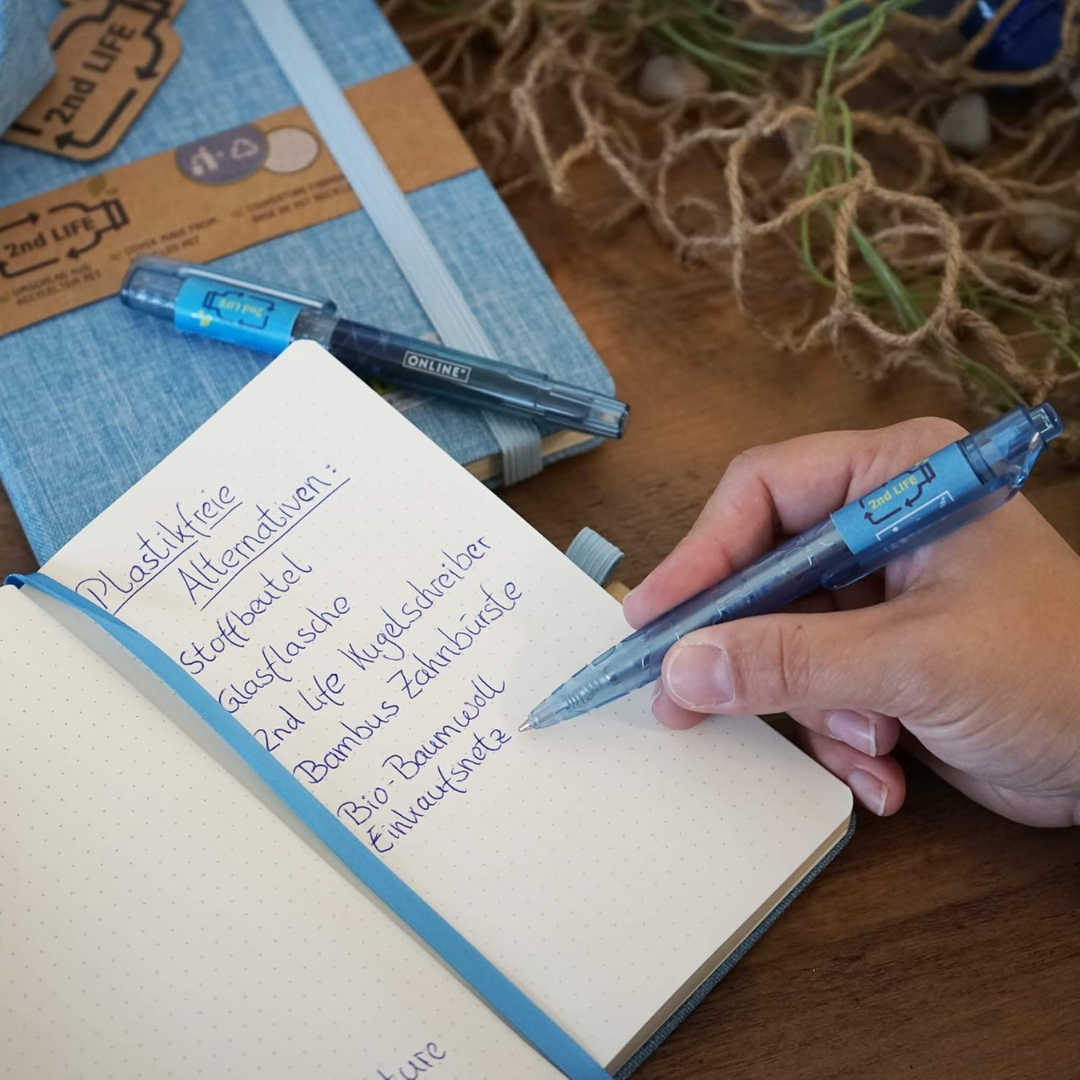 2nd LIFE
2nd LIFE
COVER MADE FROM
UMSCHLAG AUS
RECYCELTEM PET
2nd LIFE
ONLINE®
2nd LIFE
Plastikfreie
Alternativen:
Stoffbeutel
Glasflasche
2nd Life Kugelschreiber
Bambus Zahnbürste
Bio-Baumwoll
Einkaufsnetz